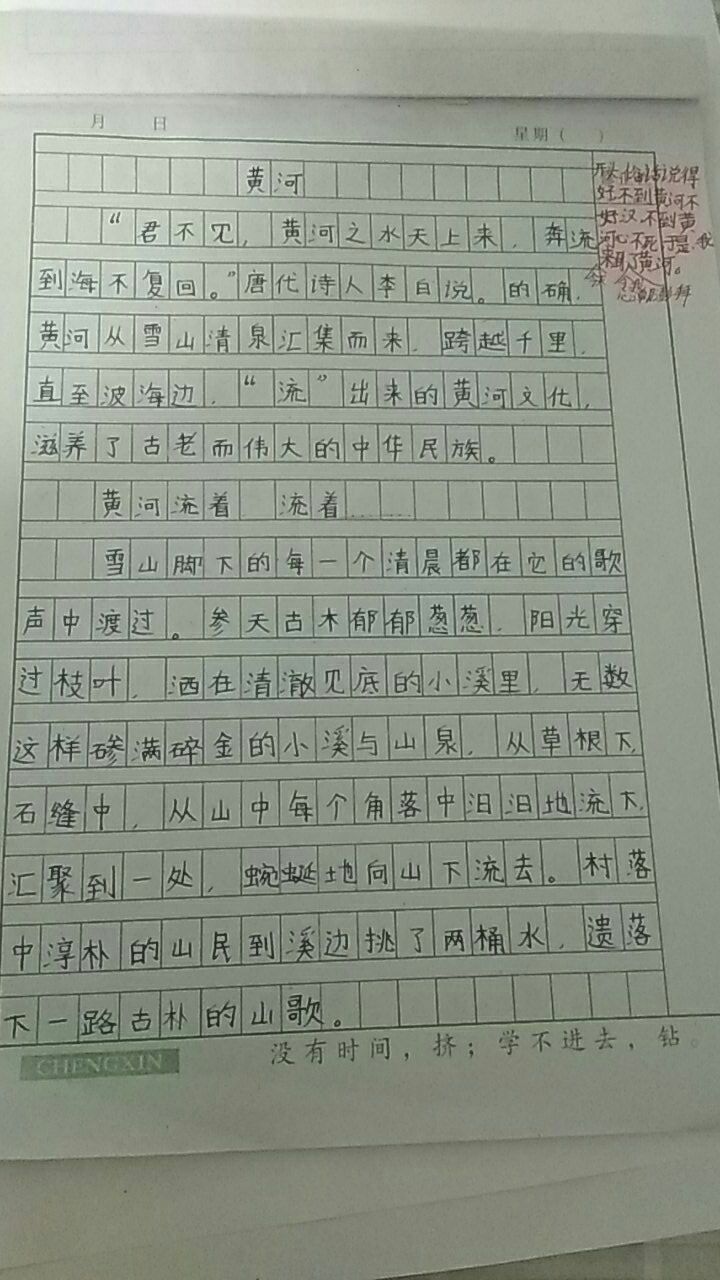 月 日 星期（ ）
黄河
“君不见，黄河之水天上来，奔流
到海不复回。”唐代诗人李白说。的确，
黄河从雪山清泉汇集而来，跨越千里，
直至波海边，“流”出来的黄河文化，
滋养了古老而伟大的中华民族。
黄河流着 流着……
雪山脚下的每一个清晨都在它的歌
声中渡过。参天古木郁郁葱葱，阳光穿
过枝叶，洒在清澈见底的小溪里，无数
这样碜满碎金的小溪与山泉，从草根下，
石缝中，从山中每个角落中汩汩地流下，
汇聚到一处，蜿蜒地向山下流去。村落
中淳朴的山民到溪边挑了两桶水，遗落
下一路古朴的山歌。
CHENGXIN
没有时间，挤；学不进去，钻。
说得
好不到黄河不
好汉，不到黄
河心不死，于是，我
来了黄河。